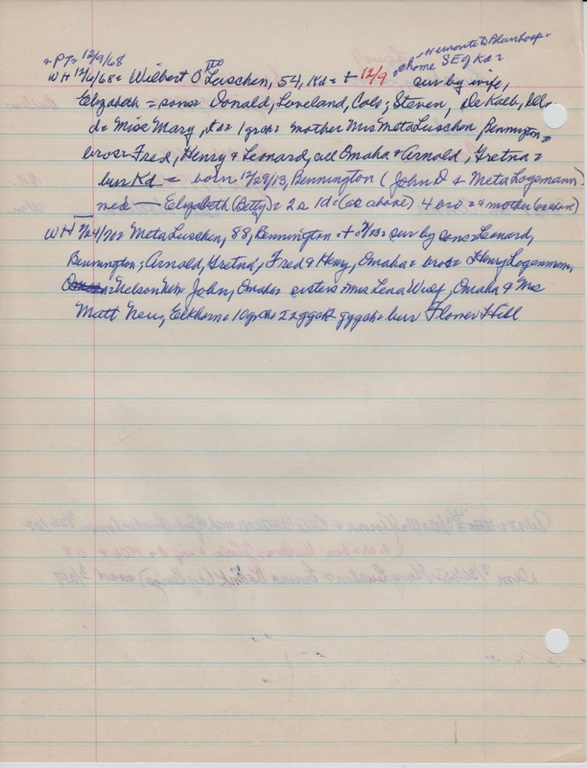 + PT= 12/9/68
WH 12/6/68= Wilbert O Luschen, 54, Kd= + 12/9 = home SE of Kd=
sur by wife,
Elizabeth = sons= Donald, Loveland, Colo; Steven, DeKalb, Ill=
d= Miss Mary, = 1 grch= mother Mrs Meta Luschen Bennington=
bros= Fred, Henry & Leonard, all Omaha & Arnold, Gretna=
bur Kd = born 12/29/13, Bennington (John D & Meta Logemann)
med — Elizabeth (Betty)= 2s 1d= (as above) 4 bro= & mother (as above)
WH 7/24/70= Meta Luschen, 88, Bennington= + = sur by sons= Leonard,
Bennington; Arnold, Gretna; Fred & Henry, Omaha= bros= Henry Logemann,
Nelson John, Omaha= sisters= Mrs Lena Wulf, Omaha & Mrs
Matt Neu, Elkhorn= 10 grch= 22 ggch= gggch= bur Flower Hill